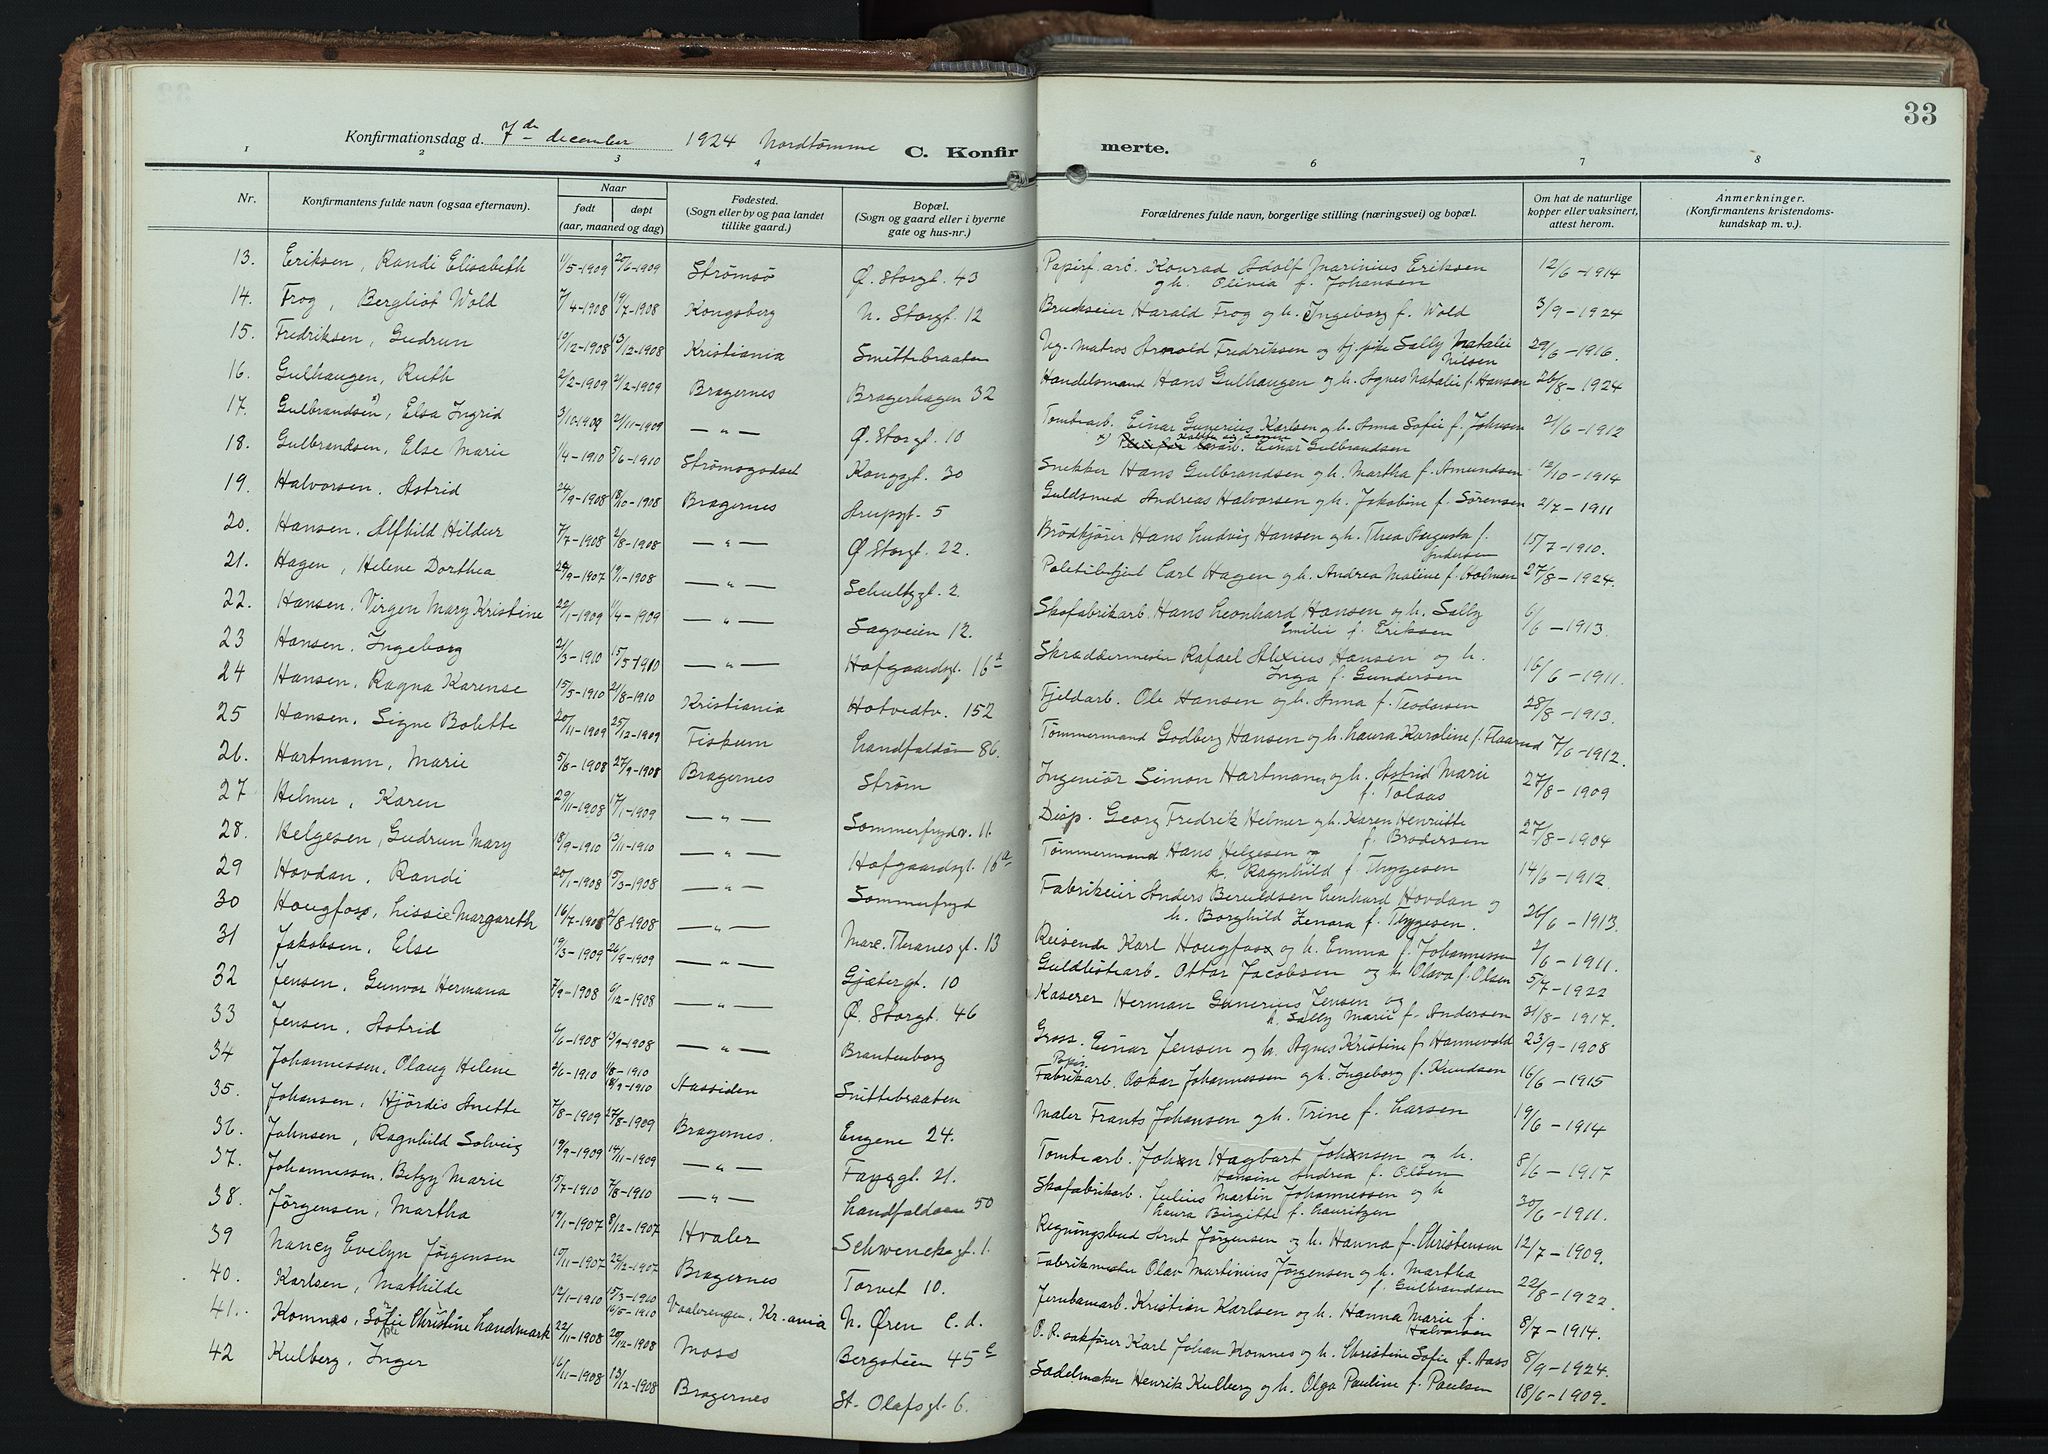 33
Konfirmationsdag d. 7de december 1924 Nordtømme C. Konfirmerte.
1 2 3 4 6 7 8
Nr. Konfirmantens fulde navn (ogsaa efternavn). Naar født døpt (aar, maaned og dag) Fødested. (Sogn eller by og paa landet tillike gaard.) Bopæl. (Sogn og gaard eller i byerne gate og hus-nr.) Forældrenes fulde navn, borgerlige stilling (næringsvei) og bopæl. Om hat de naturlige kopper eller vaksinert, attest herom. Anmerkninger. (Konfirmantens kristendomskundskap m. v.).
13. Eriksen, Randi Elisabeth 1/5-1909 20/6-1909 Strømsø Ø. Storgt. 43 Papirf. arb. Konrad Adolf Marinius Eriksen og h. Olivia f. Johansen 12/6-1914
14. Frog, Bergliot Wold 7/4-1908 19/7-1908 Kongsberg N. Storgt. 12 Brukseier Harald Frog og h. Ingeborg f. Wold 3/9-1924
15. Fredriksen, Gudrun 10/12-1908 13/12-1908 Kristiania Snittebraaten Ug. Matros Arnold Fredriksen og tj. pike Sally Natalie Nilsen 29/6-1916.
16. Gulhaugen, Ruth 2/2-1909 2/2-1909 Bragernes Bragerhagen 32 Handelsmand Hans Gulhaugen og h. Agnes Natalie f. Hansen 26/8-1924
17. Gulbrandsen x), Elsa Ingrid 3/10-1909 21/11-1909 — " — Ø. Storgt. 10 Tomtearb. Einar Gunerius Karlsen og h. Anna Sofie f. Johnsen 21/6-1912
x) Einar Gulbrandsen
18. Gulbrandsen, Else Marie 1/4-1910 5/6-1910 Strømsgodset Kongsgt. 30 Snekker Hans Gulbrandsen og h. Martha f. Amundsen 12/10-1914
19. Halvorsen, Astrid 24/9-1908 18/10-1908 Bragernes Arupsgt. 5 Guldsmed Andreas Halvorsen og h. Jakobine f. Sørensen 2/7-1911
20. Hansen, Alfhild Hildur 7/7-1908 2/8-1908 — " — Ø. Storgt. 22. Brødkjører Hans Ludvig Hansen og h. Thea Augusta f. Andersen 15/7-1910.
21. Hagen, Helene Dorthea 29/9-1907 19/1-1908 — " — Schultzgt. 2. Politibetjent Carl Hagen og h. Andrea Maline f. Holman 27/8-1924.
22. Hansen, Virgen Mary Kristine 22/1-1909 1/4-1909 — " — Sagveien 12. Skofabrikarb. Hans Leonhard Hansen og h. Sally Emilie f. Eriksen 6/6-1913.
23 Hansen, Ingeborg 21/3-1910 15/5-1910 — " — Hofgaardsgt. 16a Skræddermester Rafael Alexius Hansen og h. Inga f. Gundersen 16/6-1911.
24 Hansen, Ragna Karense 15/5-1910 21/8-1910 Kristiania Hotvedtv. 152 Fjeldarb. Ole Hansen og h. Anna f. Teodorsen 28/8-1913.
25 Hansen, Signe Bolette 20/11-1909 25/12-1909 Fiskum Landfaldøen 86. Tømmermand Godberg Hansen og h. Laura Karoline f. Flaarud 7/6-1912.
26. Hartmann, Marie 5/8-1908 27/9-1908 Bragernes Strøm Ingeniør Simon Hartmann og h. Astrid Marie f. Tolaas 27/8-1909
27 Helmer, Karen 29/11-1908 17/1-1909 — " — Sommerfrydv. 11. Disp. Georg Fredrik Helmer og h. Karen Henriette f. Brodersen 27/8-1904
28. Helgesen, Gudrun Mary 18/9-1910 13/11-1910 — " — Hofgaardsgt. 16a Tømmermand Hans Helgesen og h. Ragnhild f. Thygesen 14/6-1912.
29 Hovdan, Randi 20/1-1908 15/3-1908 — " — Sommerfryd Fabrikeier Anders Beruldsen Lenhard Hovdan og h. Borghild Zenara f. Thygesen. 26/6-1913.
30 Hougfoss, Lissie Margareth 16/7-1908 2/8-1908 — " — Marc. Thranes gt. 13 Reisende Karl Hougfoss og h. Emma f. Johannessen 2/6-1911.
31 Jakobsen, Else 19/3-1909 26/9-1909 — " — Gjætergt. 10 Guldlistearb. Ottar Jacobsen og h. Olava f. Olsen 5/7-1922
32 Jensen, Gunvor Hermana 7/9-1908 6/12-1908 — " — Ø. Storgt. 46 Kaserer Herman Gunerius Jensen og h. Sally Marie f. Andersen 31/8-1917.
33 Jensen, Astrid 6/6-1908 13/9-1908 — " — Brantenborg Gross. Einar Jensen og h. Agnes Kristine f. Hannevold 23/9-1908
34 Johannessen, Olaug Helene 2/6-1910 1/8-1910 18/9-1910 Aassiden Snittebraaten Papir Fabrikarb. Oskar Johannessen og h. Ingeborg f. Knudsen 16/6-1915
35. Johansen, Hjördis Anette 7/8-1909 27/8-1909 Bragernes. Eugene 24. Maler Frants Johansen og h. Trine f. Larsen 19/6-1914
36. Johnsen, Ragnhild Solveig 19/9-1909 14/11-1909 — " — Fayegt. 21. Tomtearb. John Hagbart Johnsen og h. Hansine Andrea f. Olsen 8/6-1917
37. Johannessen, Betzy Marie 15/7-1910 7/8-1910 — " — Landfaldøen 50 Skofabrikarb. Julius Martin Johannessen og h Laura Birgitte f. Lauritzen 30/6-1911.
38. Jørgensen, Martha 19/1-1907 8/12-1907 Hvaler Schwencksgt. 1. Regningsbud Arnt Jørgensen og h. Hanna f. Christensen 12/7-1909.
39 Nancy Evelyn Jørgensen 10/11-1907 22/2-1907 Bragernes Torvet 10. Fabrikmester Olav Martinius Jørgensen og h. Martha f. Gulbrandsen 22/8-1922.
40. Karlsen, Mathilde 12/1-1910 15/3-1910 16/5-1910 Vaalerengen, Kr.ania N. Øren C.d. Jernbanearb. Kristian Karlsen og h. Hanna Marie f. Halvorsen 8/7-1914.
41. Komnes, Sofie Christine Landmark 22/11-1908 20/12-1908 Moss Bergstien 45c O. R. sakfører Karl Johan Komnes og h. Christine Sofie f. Aass 8/9-1924.
42 Kulberg, Inger 16/11-1908 13/12-1908 Bragernes St. Olafsgt. 6. Sadelmaker Henrik Kulberg og h. Olga Pauline f. Paulsen 18/6-1909.